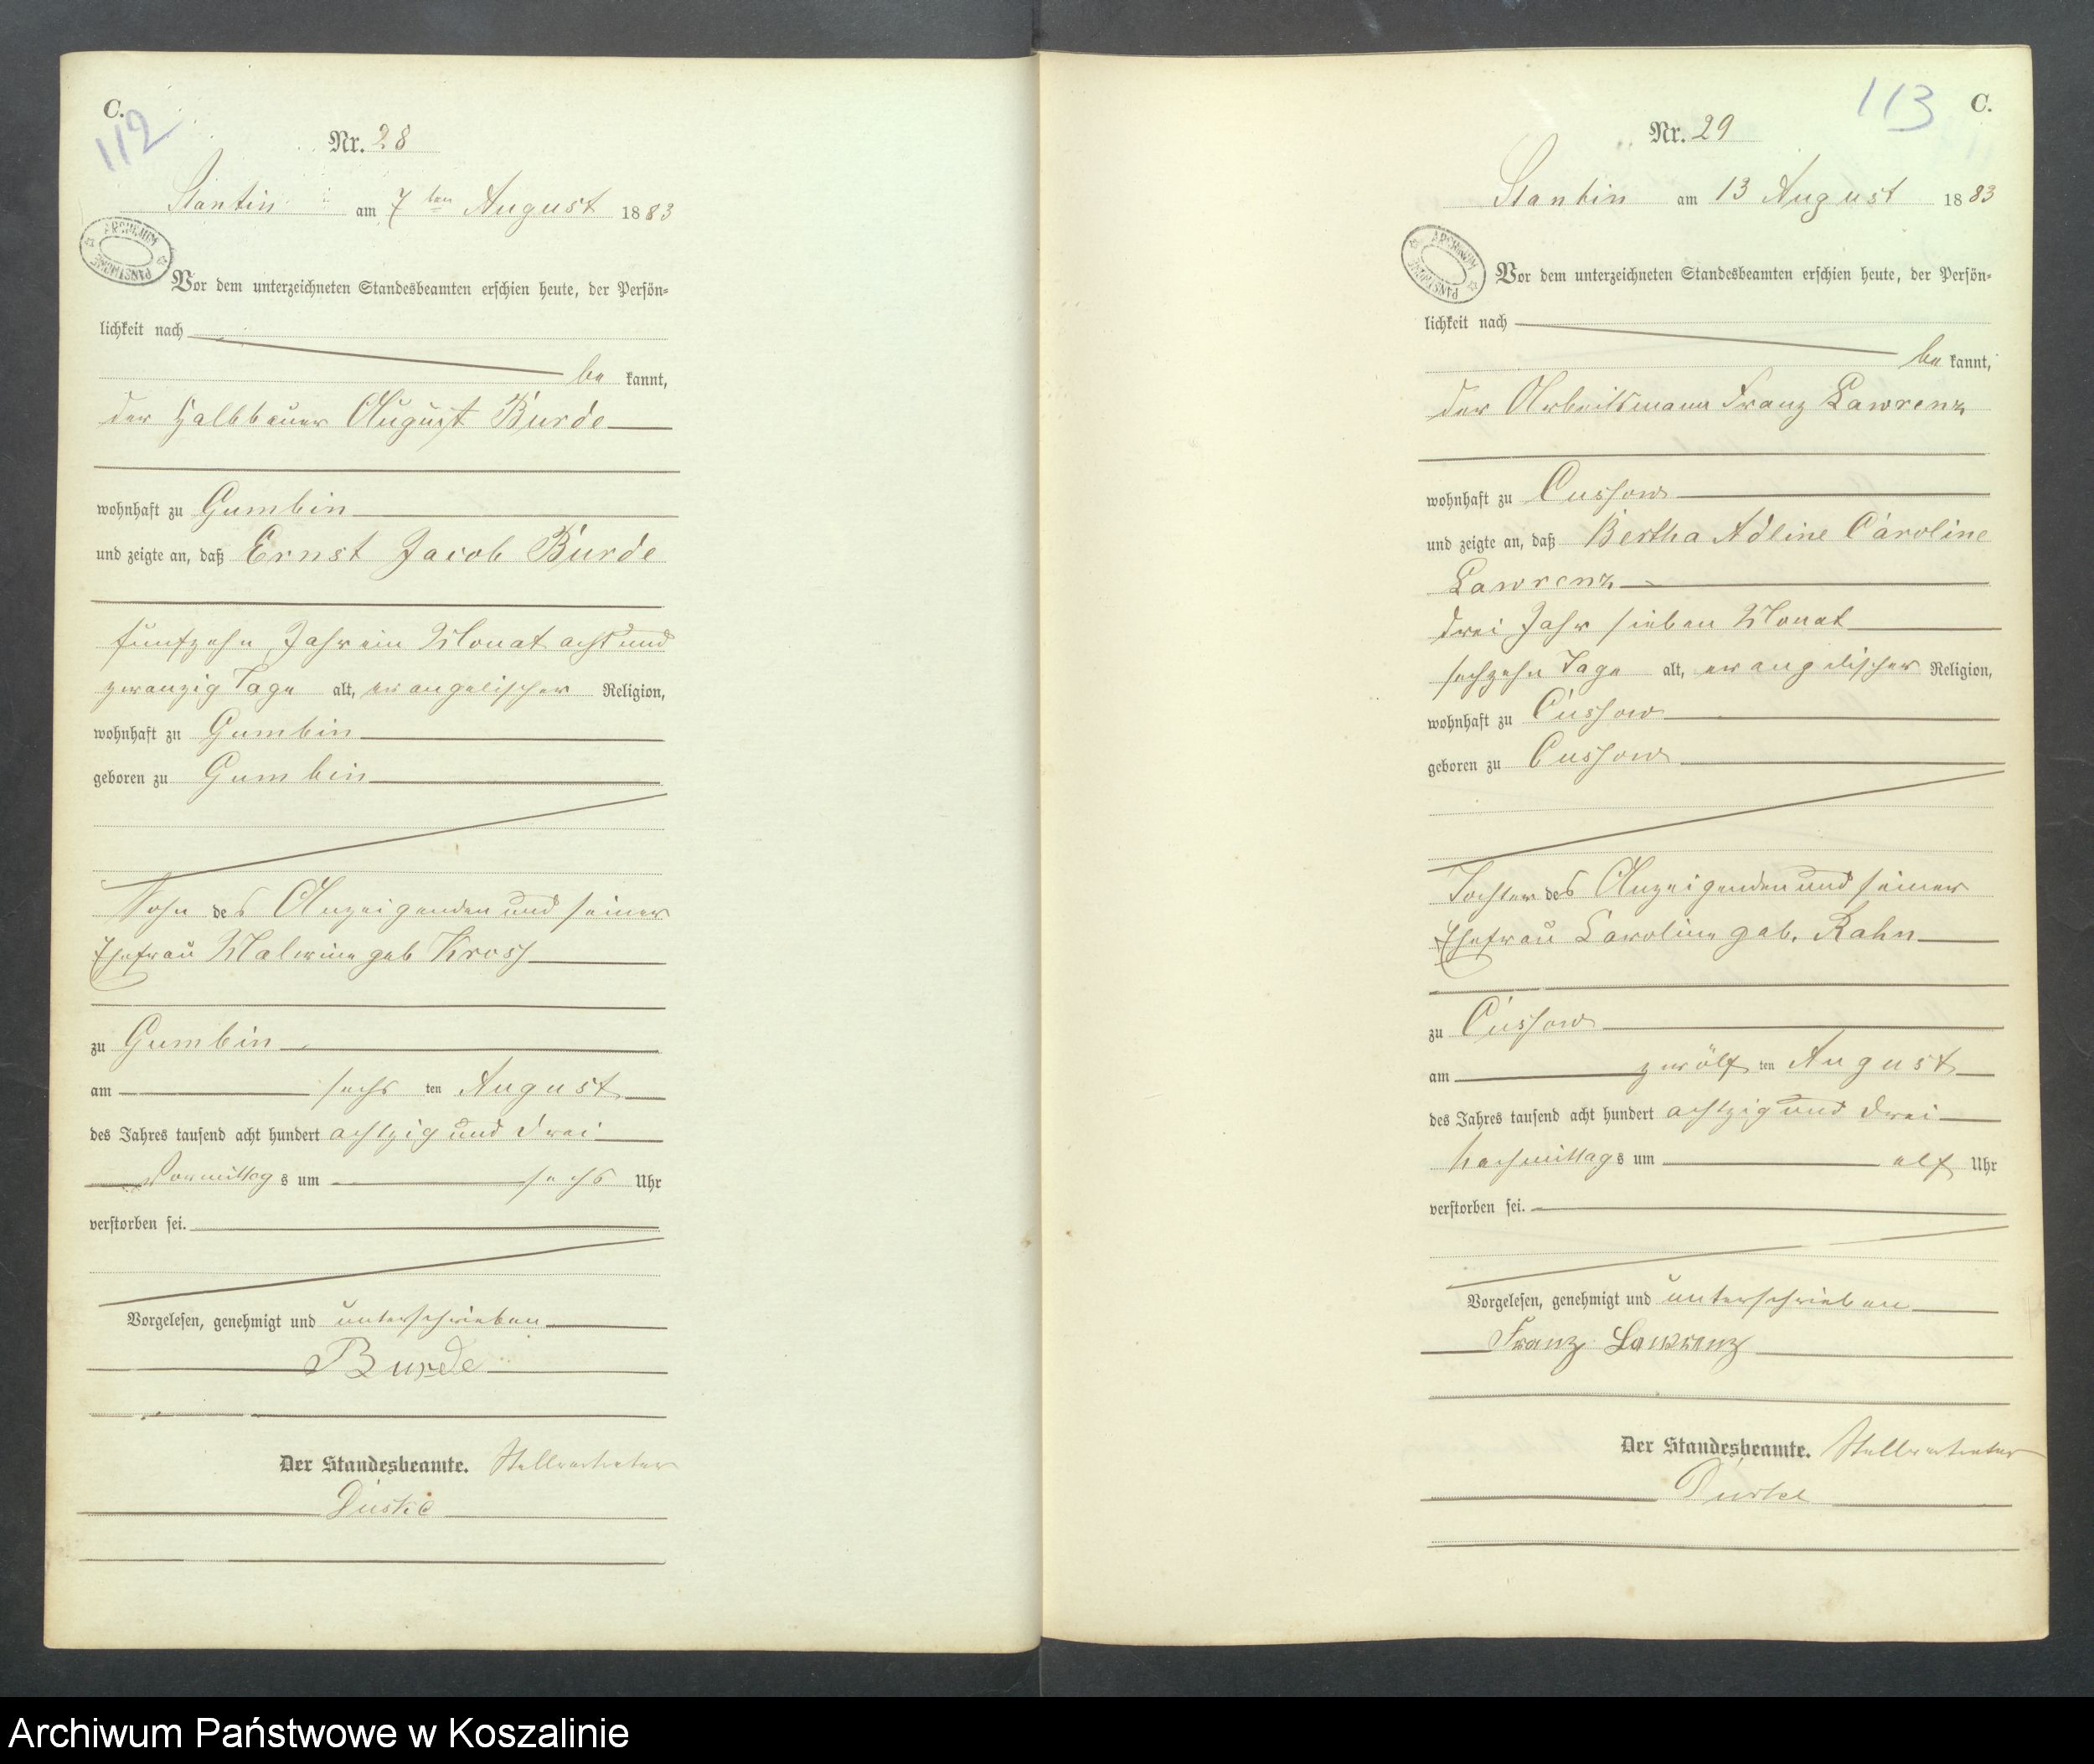 C.
112
Nr. 28
Stantin am 7ten August 1883
ARCHIWUM PAŃSTWOWE
Vor dem unterzeichneten Standesbeamten erschien heute, der Persön-
lichkeit nach
be kannt,
der Halbbauer August Burde
wohnhaft zu Gumbin
und zeigte an, daß Ernst Jacob Burde
fünfzehn Jahr ein Monat acht und
zwanzig Tage alt, evangelischer Religion,
wohnhaft zu Gumbin
geboren zu Gumbin
Sohn des Anzeigenden und seiner
Ehefrau Malwine geb Kross
zu Gumbin
am sechs ten August
des Jahres tausend acht hundert achtzig und drei
Vormittag s um sechs Uhr
verstorben sei.
Vorgelesen, genehmigt und unterschrieben
Burde
Der Standesbeamte. Stellvertreter
Duske
113
C.
Nr. 29
Stantin am 13 August 1883
ARCHIWUM PAŃSTWOWE
Vor dem unterzeichneten Standesbeamten erschien heute, der Persön-
lichkeit nach
be kannt,
der Arbeitsmann Franz Lawrenz
wohnhaft zu Cussow
und zeigte an, daß Bertha Adline Caroline
Lawrenz
drei Jahr sieben Monat
sechzehn Tage alt, evangelischer Religion,
wohnhaft zu Cussow
geboren zu Cussow
Tochter des Anzeigenden und seiner
Ehefrau Caroline geb. Rahn
zu Cussow
am zwölf ten August
des Jahres tausend acht hundert achtzig und drei
Nachmittag s um elf Uhr
verstorben sei.
Vorgelesen, genehmigt und unterschrieben
Franz Lawrenz
Der Standesbeamte. Stellvertreter
Duske
Archiwum Państwowe w Koszalinie